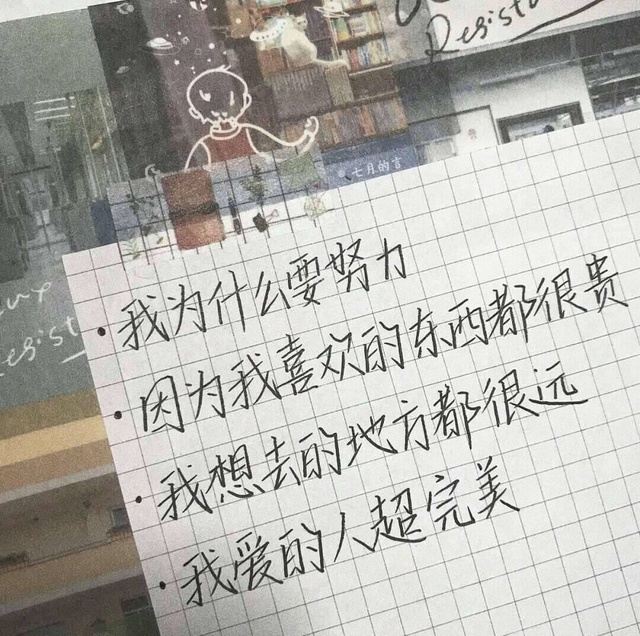 Resist
七月的言
·我为什么要努力
·因为我喜欢的东西都很贵
·我想去的地方都很远
·我爱的人超完美